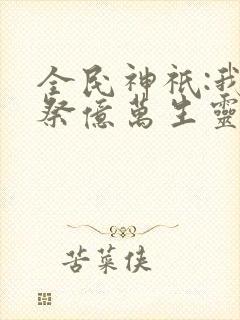 全民神祇:我
祭億萬生靈
苦菜侠